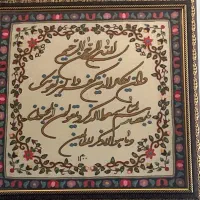 بسم الله الرحمن الرحیم
وان یکاد الذین کفروا لیزلقونک
بابصارهم لما سمعوا الذکر و یقولون انه لمجنون
و ما هو الا ذکر للعالمین